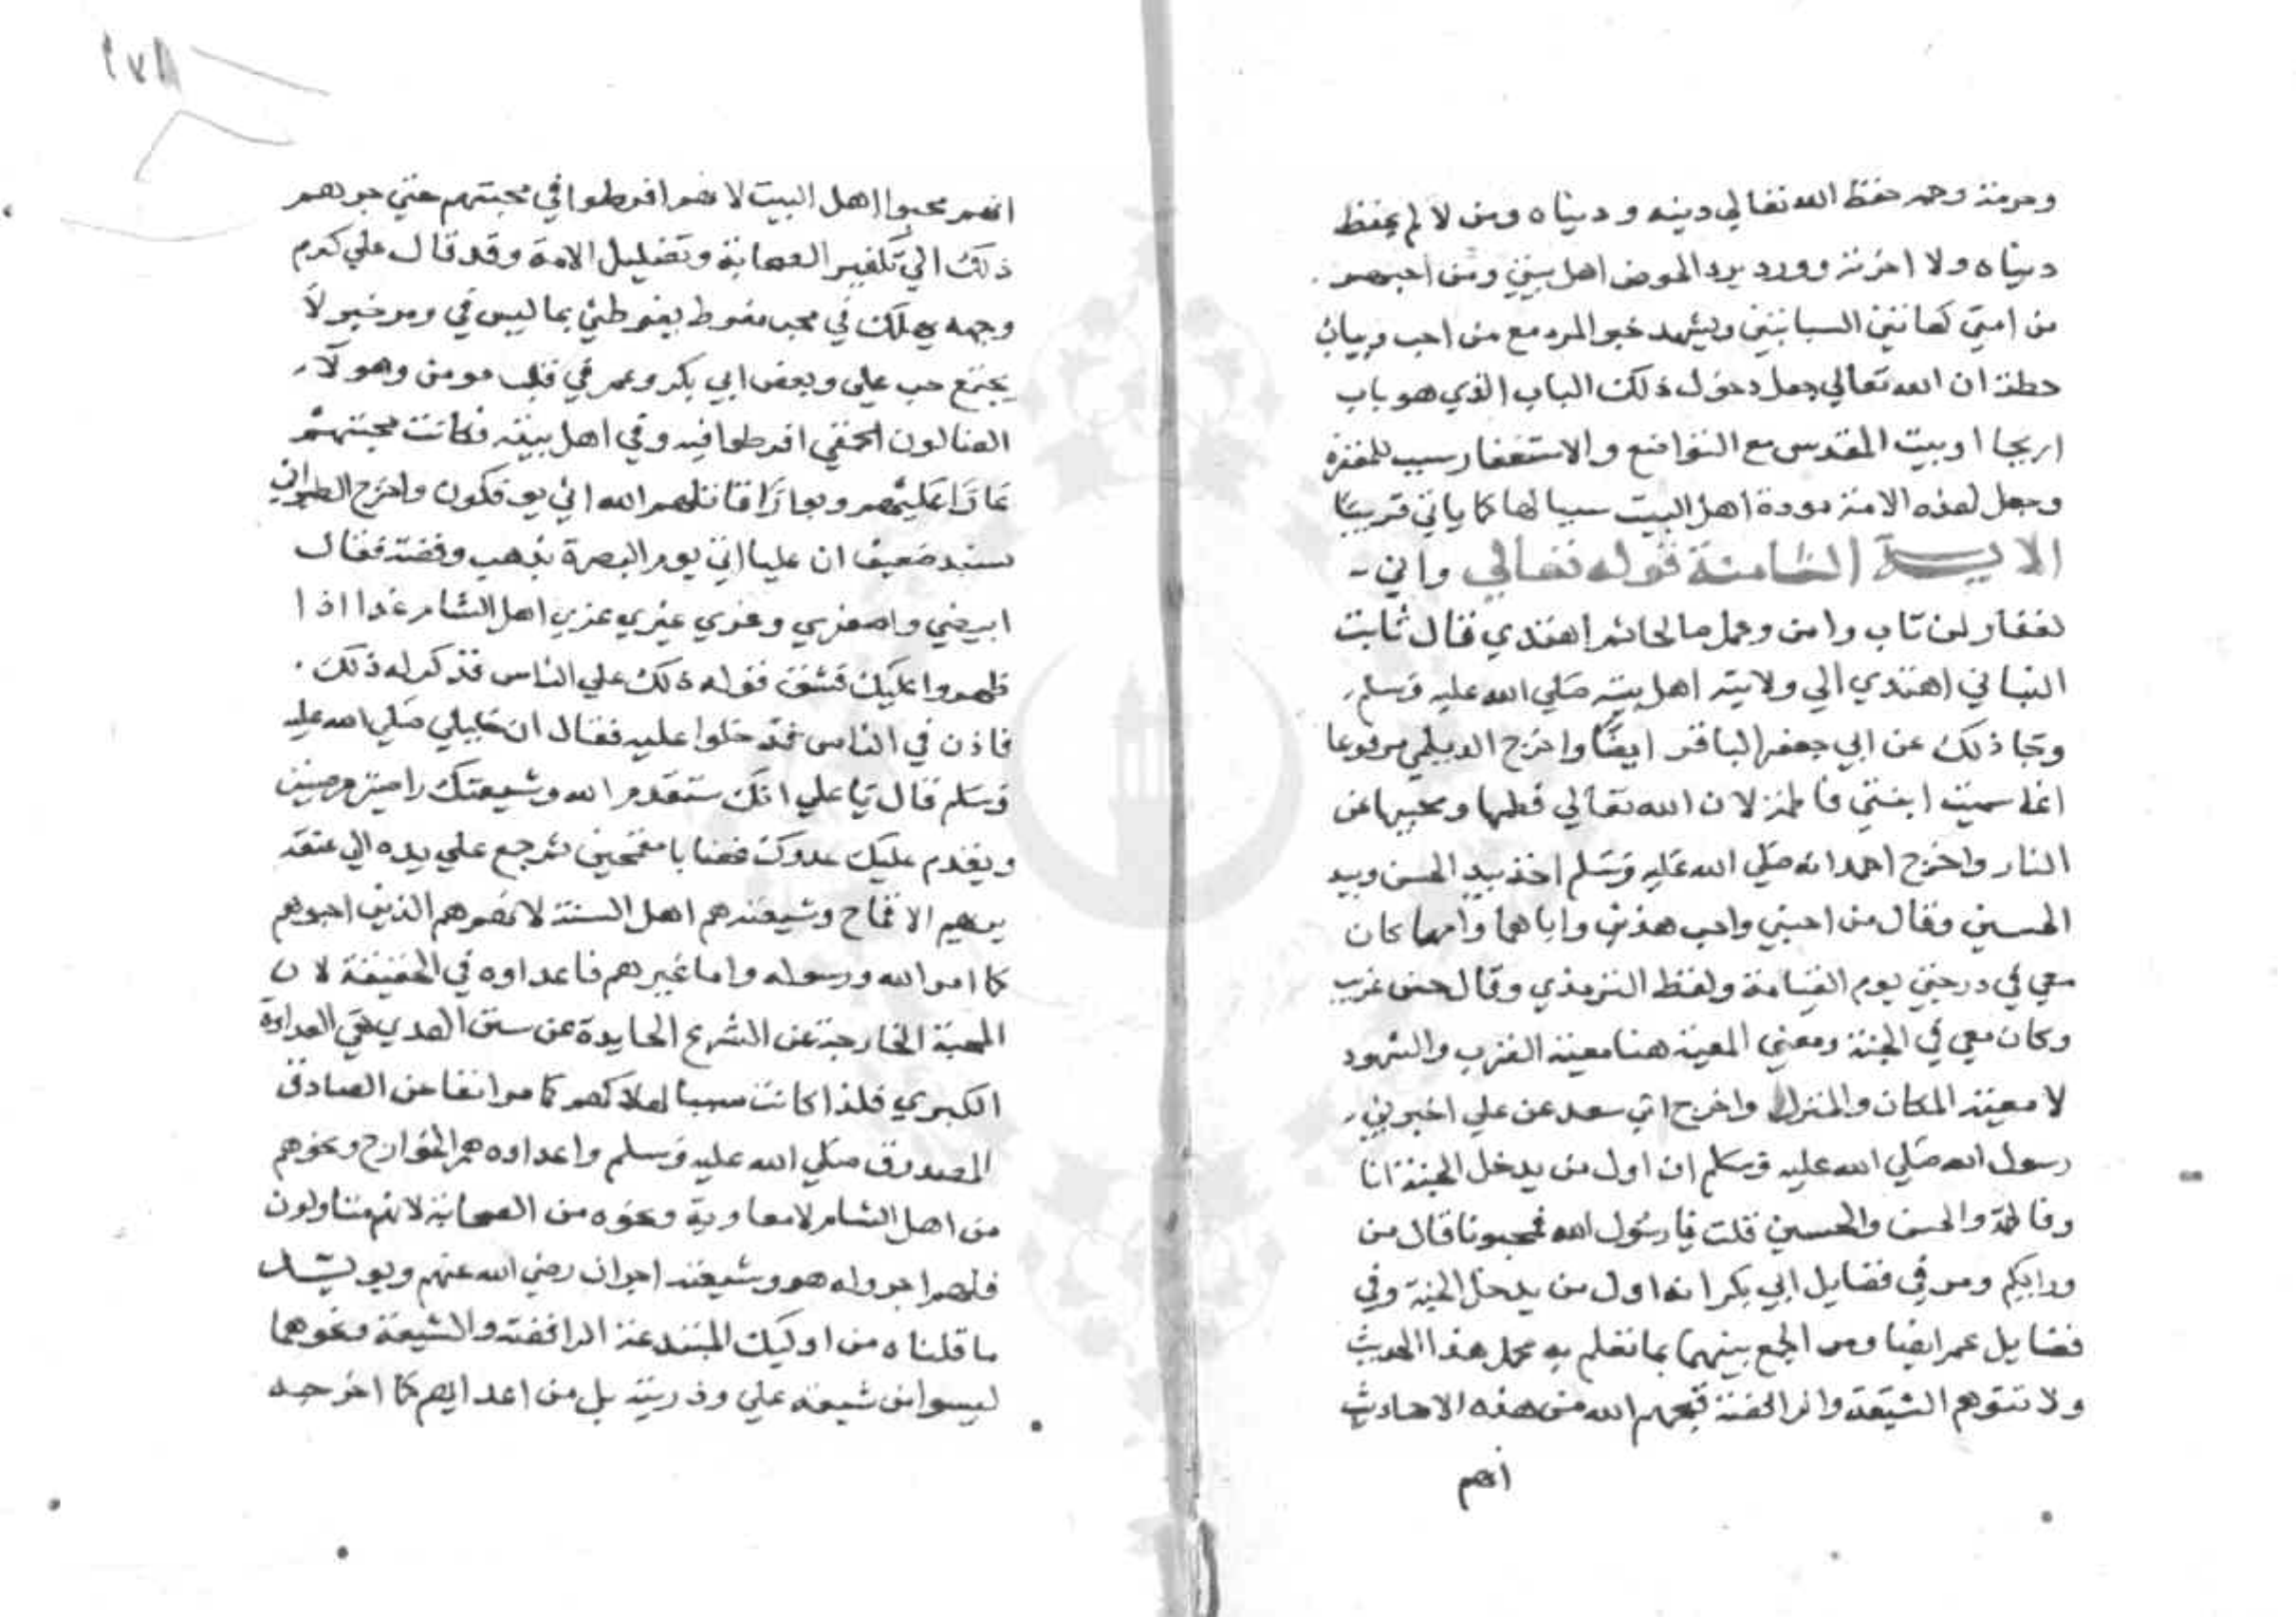 وحرمة رحمه حفظ الله تعالي دينه و دنياه ومن لا لم يحفظ
دنياه ولا اخرته وورد يرد الحوض اهل بيتي ومن احبهم
من امتي كهاتين السبابتين ويشهد خبر المرء مع من احب وبيان
حطة ان الله تعالي جعل دخول ذلك الباب الذي هو باب
اريحا او بيت المقدس مع التواضع والاستغفار سببا للمغفرة
وجعل لهذه الامة مودة اهل البيت سببا لها كما ياتي قريبا
الاية الثامنة قوله تعالي واني
لغفار لمن تاب وامن وعمل صالحا ثم اهتدي قال ثابت
البناني اهتدي الي ولاية اهل بيته صلي الله عليه وسلم
وجا ذلك عن ابي جعفر الباقر ايضا واخرج الديلمي مرفوعا
انما سميت ابنتي فاطمة لان الله تعالي فطمها ومحبيها عن
النار واخرج احمد انه صلي الله عليه وسلم اخذ بيد الحسن وبيد
الحسين وقال من احبني واحب هذين واباهما وامهما كان
معي في درجتي يوم القيامة ولفظ الترمذي وقال حسن غريب
وكان معي في الجنة ومعني المعية هنا معية القرب والشهود
لا معية المكان والمنزل واخرج ابن سعد عن علي اخبرني
رسول الله صلي الله عليه وسلم ان اول من يدخل الجنة انا
وفاطمة والحسن والحسين قلت يا رسول الله فمحبونا قال من
ورايكم ومر في فضايل ابي بكر انه اول من يدخل الجنة وفي
فضايل عمر ايضا ومر الجمع بينهما بما تعلم به محمل هذا الحديث
ولا تتوهم الشيعة والرافضة قبحهم الله من هذه الاحاديث
انهم
٢٧٨
انهم محبوا اهل البيت لانهم افرطوا في محبتهم حتي جرهم
ذلك الي تكفير الصحابة وتضليل الامة وقد قال علي كرم
وجهه يهلك في محب مفرط يفرطني بما ليس في ومر خبر لا
يجتمع حب علي وبغض ابي بكر وعمر في قلب مومن وهولا
الضالون الحمقي افرطوا فيه وفي اهل بيته فكانت محبتهم
عارا عليهم وبوارا قاتلهم الله اني يوفكون واخرج الطبراني
بسند ضعيف ان عليا اتي يوم البصرة بذهب وفضة فقال
ابيضي واصفري وغري غيري غري اهل الشام غدا اذا
ظهروا عليك فشق قوله ذلك علي الناس فذكر له ذلك
فاذن في الناس فدخلوا عليه فقال ان خليلي صلي الله عليه
وسلم قال يا علي انك ستقدم الله وشيعتك راضين مرضيين
ويقدم عليك عدوك غضابا مقمحين ثم جمع علي يده الي عنقه
يريهم الاقماح وشيعته هم اهل السنة لانهم هم الذين احبوهم
كما امر الله ورسوله واما غيرهم فاعداوه في الحقيقة لان
المحبة الخارجة عن الشرع الحايدة عن سنن الهدي هي العداوة
الكبري فلذا كانت سببا لهلاكهم كما مر انفا عن الصادق
المصدوق صلي الله عليه وسلم واعداوه هم الخوارج ونحوهم
من اهل الشام لا معاوية ونحوه من الصحابة لانهم متاولون
فلهم اجر وله هو وشيعته اجران رضي الله عنهم ويويد
ما قلناه من اوليك المبتدعة الرافضة والشيعة ونحوهما
ليسوا من شيعة علي وذريته بل من اعدايهم كما اخرجه